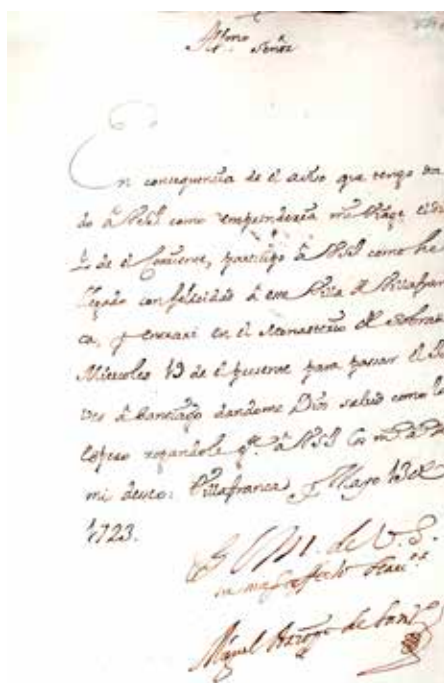 Illmo Señor
En consequencia de el aviso que tengo da
do â VSI como emprenderia mi viage el dia
de el Corriente, participo â VSI como he
llegado con felicidad â esta Villa de Villafran
ca, y entrarè en el Monasterio de Sobrado
Miercoles 19 de el presente para passar el Jue
ves â Santiago dandome Dios salud como lo
espero rogandole gde. â VSI los ms. as. de
mi deseo: Villafranca y Mayo 13 de
1723.
B L M. de V.S.
su mas afecto
Miguel Arzpo. de Santo